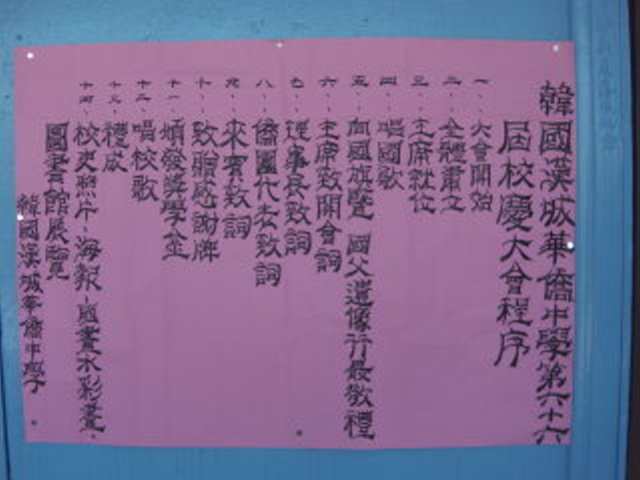 韓國漢城華僑中學第六十六
屆校慶大會程序
一、大會開始
二、全體肅立
三、主席就位
四、唱國歌
五、向國旗暨 國父遺像行最敬禮
六、主席致開會詞
七、理事長致詞
八、僑團代表致詞
九、來賓致詞
十、致贈感謝牌
十一、頒發獎學金
十二、唱校歌
十三、禮成
十四、校史照片、海報、國畫水彩畫、
圖書館展覽
韓國漢城華僑中學